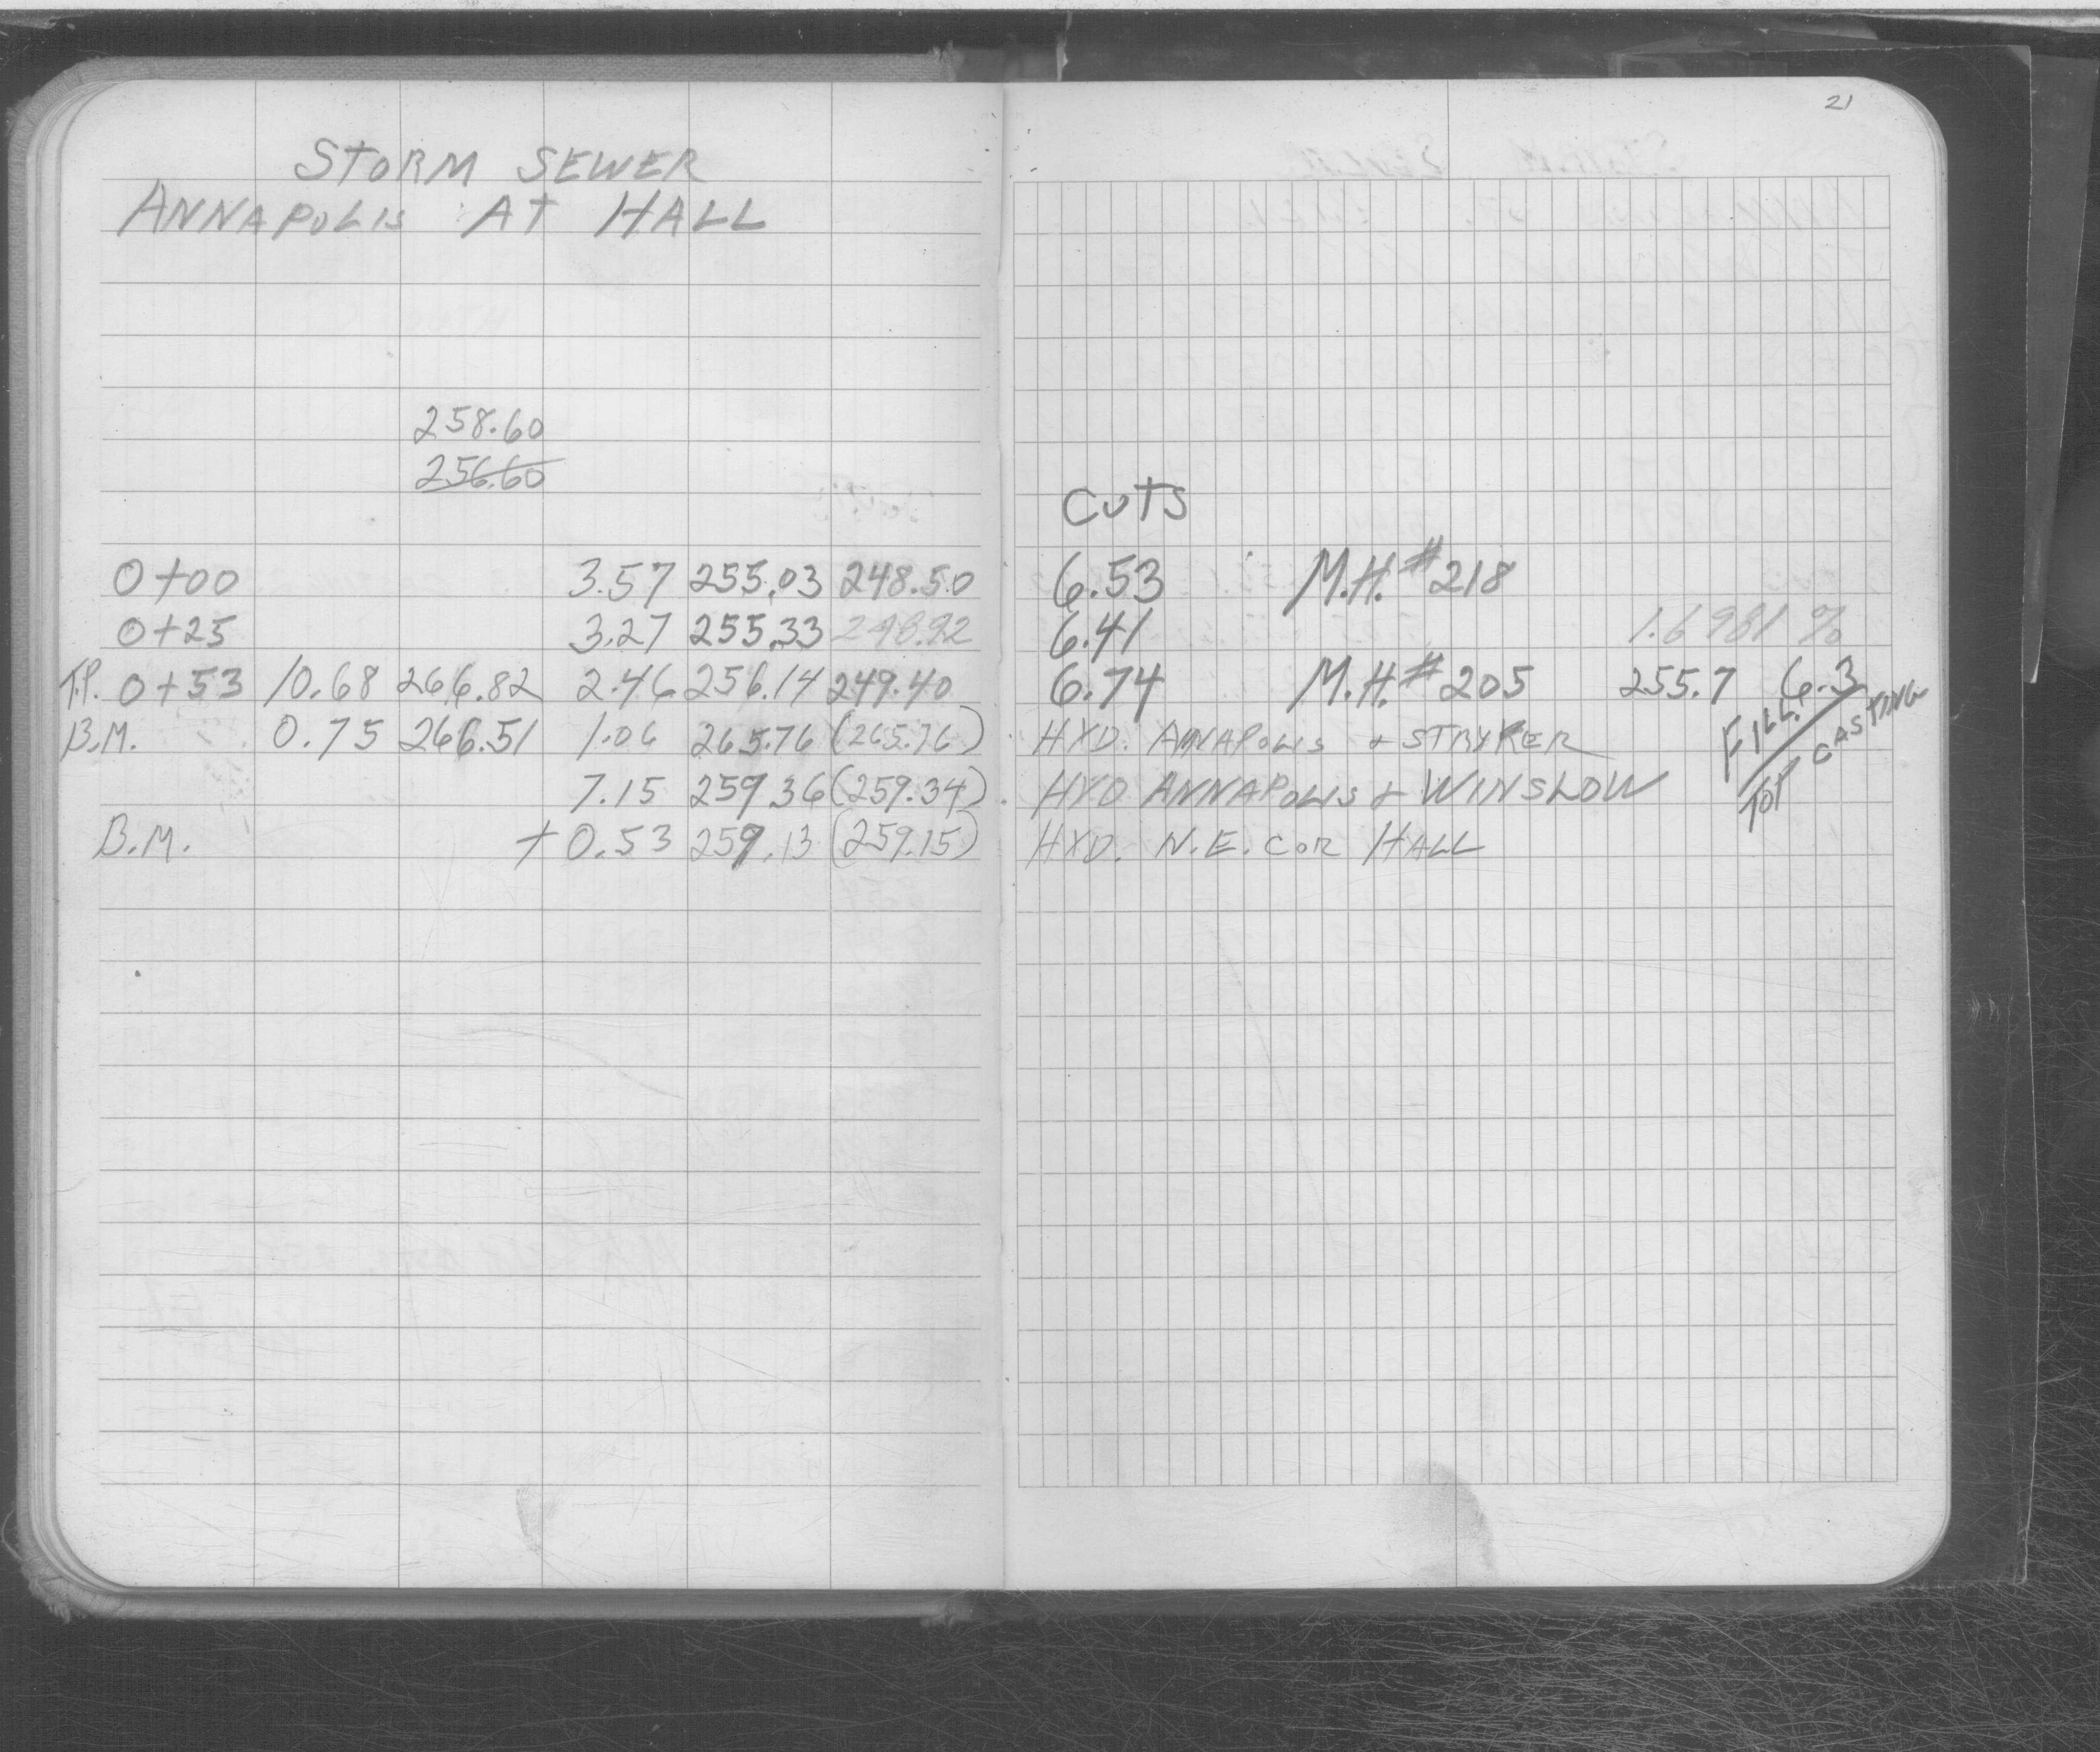 21
STORM SEWER
ANNAPOLIS AT HALL
258.60
256.60
CUTS
0+00 3.57 255.03 248.50 6.53 M.H. #218
0+25 3.27 255.33 248.92 6.41 1.6981 %
T.P. 0+53 10.68 266.82 2.46 256.14 249.40 6.74 M.H. #205 255.7 6.3
B.M. 0.75 266.51 1.06 265.76 (265.76) HYD. ANNAPOLIS & STRYKER FILL TOP CASTING
7.15 259.36 (259.34) HYD ANNAPOLIS & WINSLOW
B.M. +0.53 259.13 (259.15) HYD. N.E. COR HALL